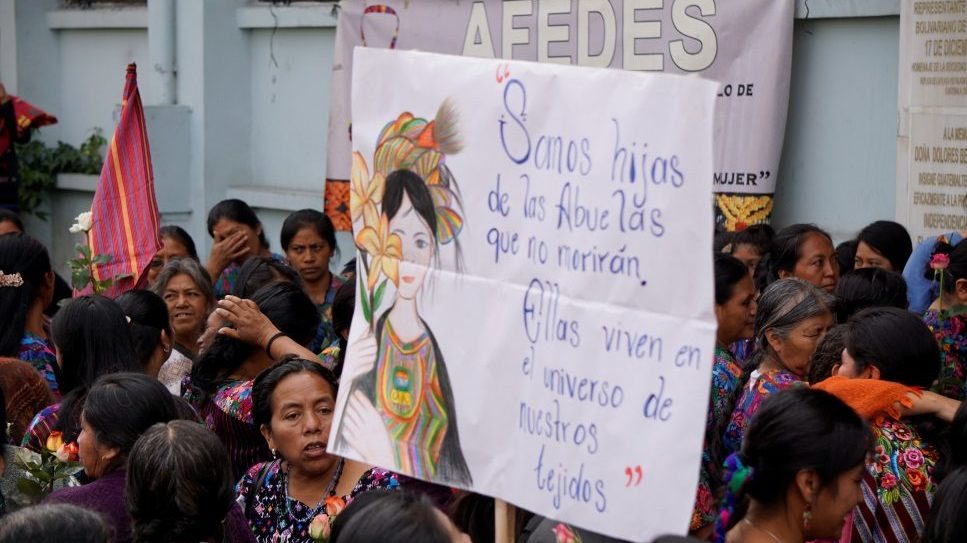 AFEDES
LO DE
MUJER”
“Somos hijas
de las Abuelas
que no morirán.
Ellas viven en
el universo de
nuestros
tejidos”
REPRESENTANTE
BOLIVARIANO DE
17 DE DICIEM
A LA MEM
DOÑA DOLORES BE
INSIGNE GUATEMAL
EFICAZMENTE A LA
INDEPENDENCIA